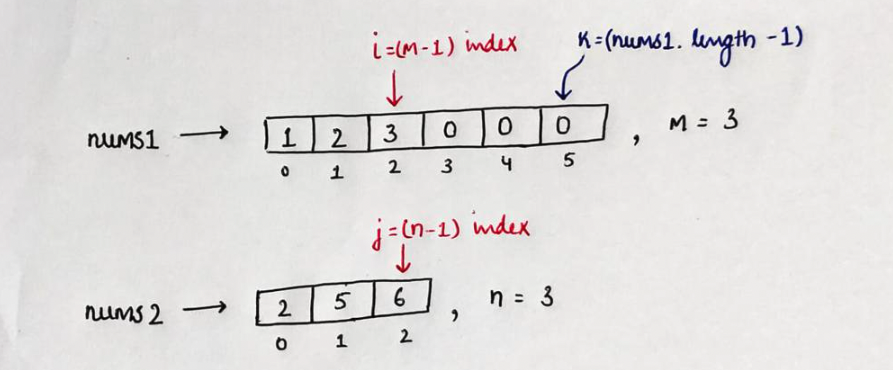 i=(m-1) index
K=(nums1. length -1)
nums1 → 1 2 3 0 0 0 , M = 3
0 1 2 3 4 5
j=(n-1) index
nums2 → 2 5 6 , n = 3
0 1 2